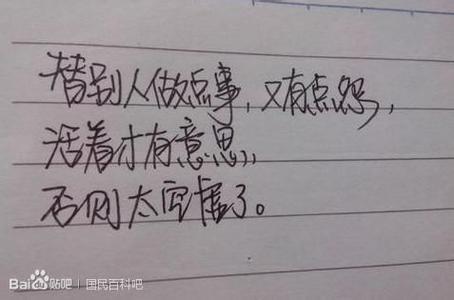 替别人做点事，又有点怨，
活着才有意思，
否则太空虚了。
Baidu贴吧 | 国民百科吧